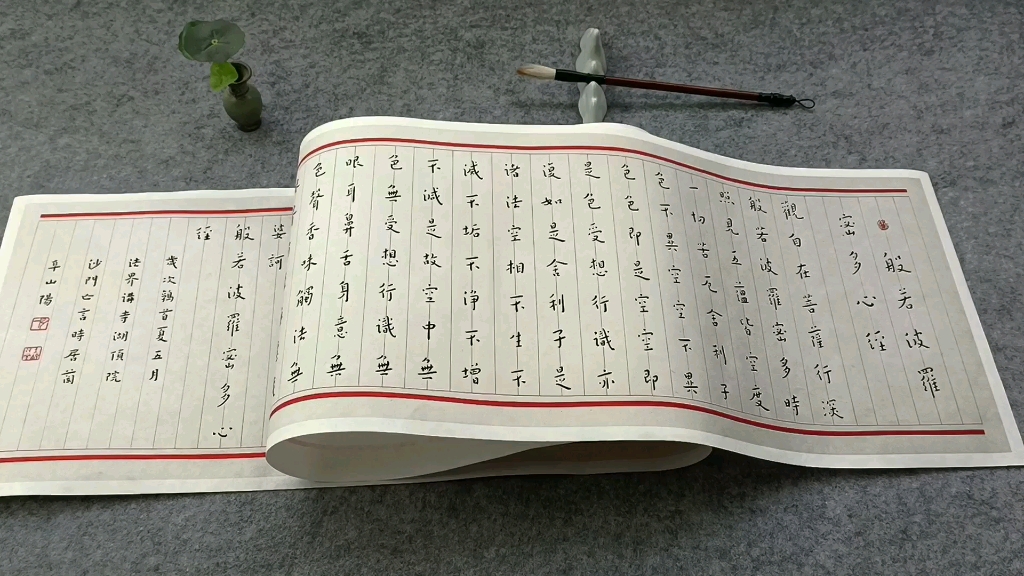 般若波羅
密多心經
觀自在菩薩行深
般若波羅密多時
照見五蘊皆空度
一切苦厄舍利子
色不異空空不異
色色即是空空即
是色受想行識亦
復如是舍利子是
諸法空相不生不
滅不垢不淨不增
不減是故空中無
色無受想行識無
眼耳鼻舌身意無
色聲香味觸法無
娑訶
般若波羅密多心
經
歲次鶉首夏五月
法界講寺湖頂院
沙門亡言時居茵
阜山陽